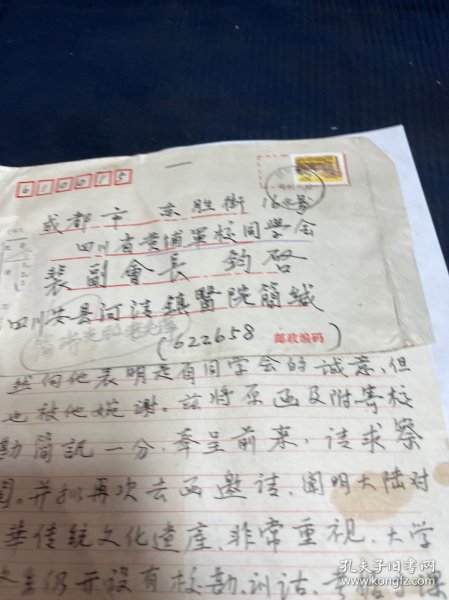 610015
成都市 东胜街 16号
四川省黄埔軍校同学会
裴副會長 鈞啓
四川安县河清鎮醫院簡緘
(622658
邮政编码)
然向他表明是自同学会的诚意,但
也被他婉谢。兹将原函及附寄校
勘简訊一分,奉呈前来,请求察
阅。并拟再次去函邀请,阐明大陆对
華传統文化遗産、非常重视、大学
文系仍开设有校勘、训诂、
孔夫子旧书网